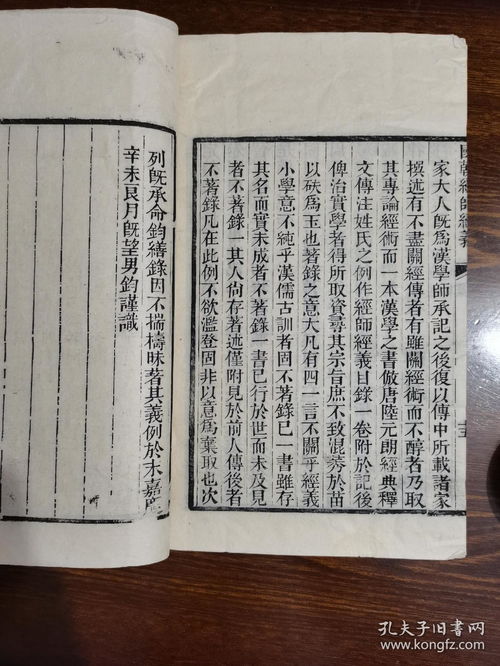 國朝經師經義
家大人既爲漢學師承記之後復以傳中所載諸家
撰述有不盡關經傳者有雖關經術而不醇者乃取
其專論經術而一本漢學之書倣唐陸元朗經典釋
文傳注姓氏之例作經師經義目錄一卷附於記後
俾治實學者得所取資尋其宗旨庶不致混莠於苗
以砆爲玉也著錄之意大凡有四一言不關乎經義
小學意不純乎漢儒古訓者固不著錄已一書雖存
其名而實未成者不著錄一書已行於世而未及見
者不著錄一其人尙存著述僅附見於前人傳後者
不著錄凡在此例不欲濫登固非以意爲棄取也次
列既承命鈞繕錄因不揣檮昧著其義例於末嘉慶
辛未良月既望男鈞謹識
孔夫子旧书网
kongfz.com